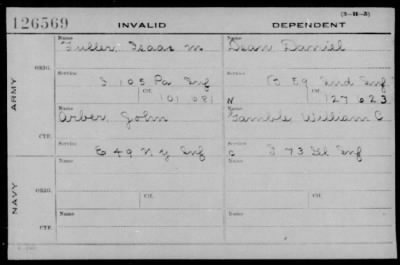 (3-H-5)
126569 INVALID DEPENDENT
Name Name
Fuller Isaac M Dean Daniel
ORIG. Service Service
I 105 Pa Inf B 59 Ind Inf
Ctf. N Ctf.
101 081 127 623
ARMY
Name Name
Arber John Gamble William C
CTF. Service Service
E 49 N Y Inf C I 73 Ill Inf
Name Name
ORIG. Service Ctf. Service Ctf.
NAVY
Name Name
CTF.